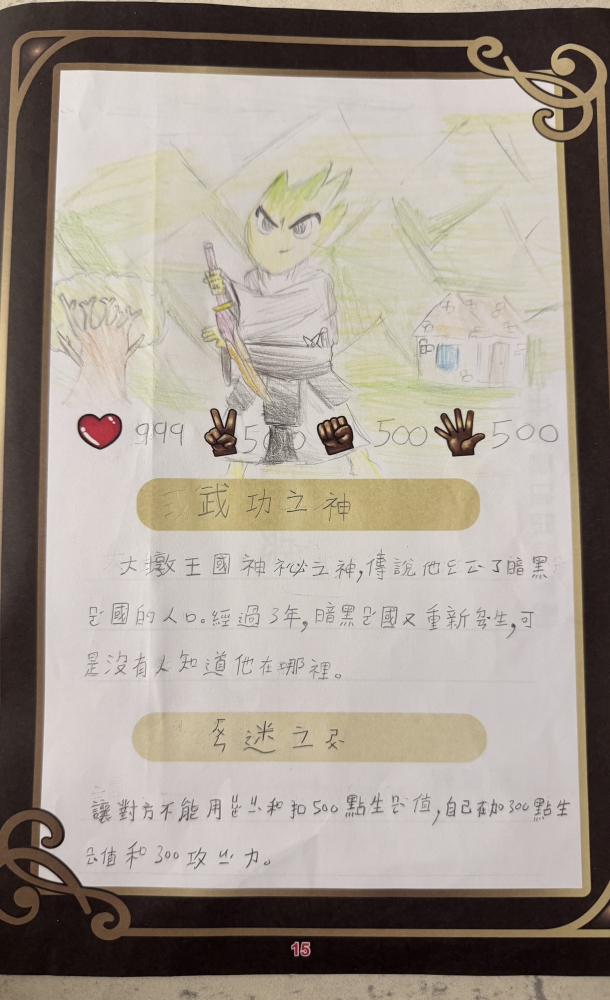 999 500 500 500
武功之神
大墩王國神祕之神,傳說他了暗黑
國的人口。經過3年,暗黑國又重新生,可
是沒有人知道他在哪裡。
迷之
讓對方不能用和扣500點生值,自己在加300點生
值和300攻力。
15